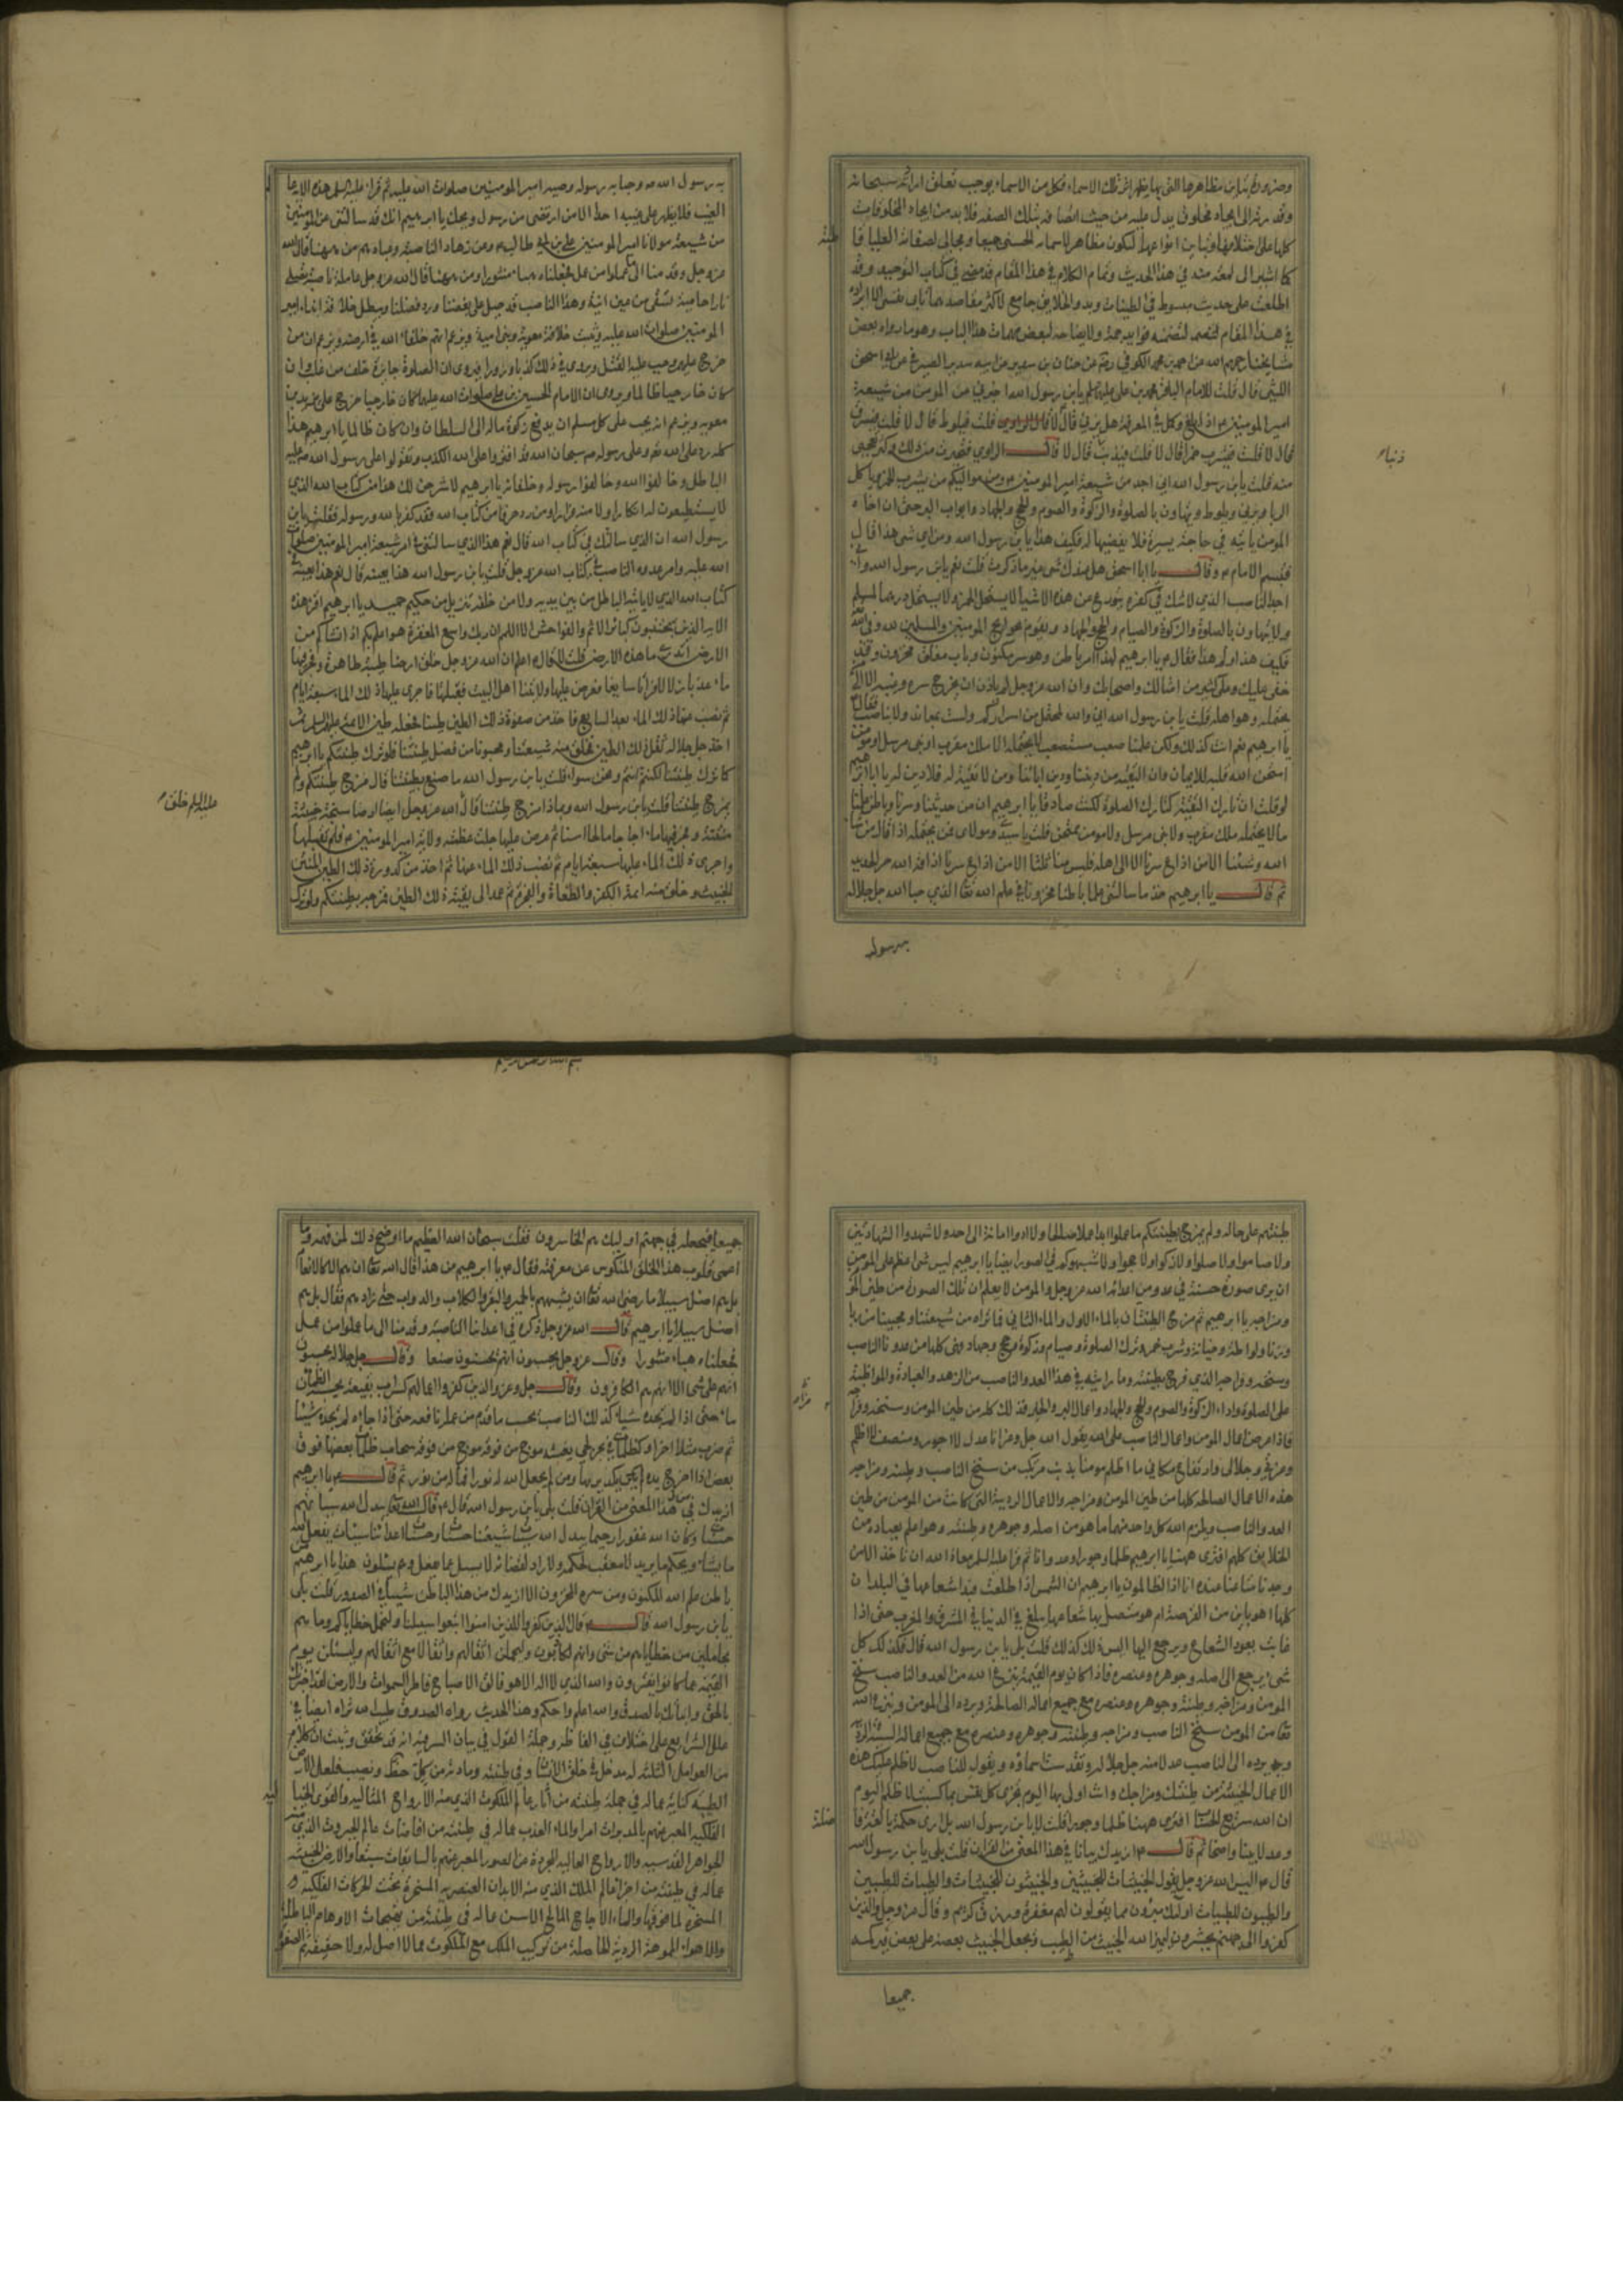 كلها على اختلافها وتباين انواعها لتكون مظاهر لاسمائه الحسنى جميعا ومجالى لصفاته العليا قاطبة
كما اشير الى لمعة منه في هذا الحديث وتمام الكلام في هذا المقام قد مضى في كتاب التوحيد وقد
اطلعت على حديث مبسوط في الطينات وبدو الخلايق جامع لاكثر مقاصد هذا الباب
في هذا المقام لتضمنه فوايد جمة ولايضاحه لبعض مبهمات هذا الباب وهو ما رواه بعض
مشايخنا رحمهم الله عن احمد بن محمد الكوفي عن حنان بن سدير عن ابيه سدير الصيرفي عن ابي اسحق
الليثي قال قلت للامام الباقر محمد بن علي يابن رسول الله اخبرني عن المومن من شيعة
امير المومنين اذا بلغ وكمل في المعرفة هل يزني قال لا قلت فيلوط قال لا قلت فيسرق
قال لا قلت فيشرب خمرا قال لا قلت فيذنب قال لا قال الراوي فتحيرت من ذلك وكثر تعجبي
منه قلت يابن رسول الله اني اجد من شيعة امير المومنين ومن مواليكم من يشرب الخمر وياكل
الربا ويزني ويلوط ويتهاون بالصلوة والزكوة والصوم والحج والجهاد وابواب البر حتى ان اخاه
المومن ياتيه في حاجة يسيرة فلا يقضيها له فكيف هذا يابن رسول الله ومن اي شي هذا قال
فتبسم الامام وقال يا ابا اسحق هل عندك شي غير ما ذكرت قلت نعم يابن رسول الله واني
اجد الناصب الذي لا اشك في كفره يتورع عن هذه الاشيا لا يستحل الخمر ولا يستحل درهما لمسلم
ولا يتهاون بالصلوة والزكوة والصيام والحج والجهاد ويقوم بحوايج المومنين والمسلمين لله وفي الله
فكيف هذا ولم هذا فقال يا ابرهيم لهذا امر باطن وهو سر مكنون وباب مغلق مخزون وقد
خفي عليك وعلى كثير من امثالك واصحابك وان الله عز وجل لم ياذن ان يخرج سره وغيبه الا الى من
يحتمله وهو اهله قلت يا بن رسول الله اني والله لمحتمل من اسراركم ولست بمعاند ولا بناصب فقال
يا ابرهيم نعم انت كذلك ولكن علمنا صعب مستصعب لا يحتمله الا ملك مقرب او نبي مرسل او مومن
امتحن الله قلبه للايمان وان التقية من ديننا ودين ابائنا ومن لا تقية له فلا دين له يا ابرهيم
لو قلت ان تارك التقية كتارك الصلوة لكنت صادقا يا ابرهيم ان من حديثنا وسرنا وباطن علمنا
ما لا يحتمله ملك مقرب ولا نبي مرسل ولا مومن ممتحن قلت يا سيدي ومولاي فمن يحتمله اذا قال من شاء
الله وشئنا الا من اذاع سرنا الا الى اهله فليس منا ثلثا الا من اذاع سرنا اذاقه الله حر الحديد
ثم قال يا ابرهيم خذ ما سالتني علما باطنا مخزونا في علم الله تعا الذي حبا الله جل جلاله
به رسوله
به رسول الله وحبا به رسوله وصيه امير المومنين صلوات الله عليه ثم قرا عليه السلم هذه الاية عالم
الغيب فلا يظهر على غيبه احدا الا من ارتضى من رسول ويحك يا ابرهيم انك قد سالتني عن المومنين
من شيعة مولانا امير المومنين علي بن ابي طالب وعن زهاد الناصبة وعبادهم من ههنا قال الله
عز وجل وقدمنا الى ما عملوا من عمل فجعلناه هباء منثورا ومن ههنا قال الله عز وجل عاملة ناصبة تصلى
نارا حامية تسقى من عين انية وهذا الناصب قد جبل على بغضنا ورد فضلنا ويبطل خلافة ابينا امير
المومنين صلوات الله عليه ويثبت خلافة معوية وبني امية ويزعم انهم خلفاء الله في ارضه ويزعم ان من
خرج عليهم وجب عليه القتل ويروي في ذلك كذبا وزورا ويروي ان الصلوة جايزة خلف من غلب وان
كان خارجيا ظالما ويروي ان الامام الحسين بن علي صلوات الله عليهما كان خارجيا خرج على يزيد بن
معوية ويزعم انه يجب على كل مسلم ان يدفع زكوة ماله الى السلطان وان كان ظالما يا ابرهيم هذا
كله رد على الله عز وعلى رسوله سبحان الله قد افتروا على الله الكذب وتقولوا على رسول الله
الباطل وخالفوا الله وخالفوا رسوله وخلفائه يا ابرهيم لاشرحن لك هذا من كتاب الله الذي
لا يستطيعون له انكارا ولا منه فرارا ومن رد حرفا من كتاب الله فقد كفر بالله ورسوله فقلت يابن
رسول الله ان الذي سالتك في كتاب الله قال نعم هذا الذي سالتني في امر شيعة امير المومنين صلوات
الله عليه وامر عدوه الناصب في كتاب الله عز وجل قلت يابن رسول الله هذا بعينه قال نعم هذا بعينه في
كتاب الله الذي لا ياتيه الباطل من بين يديه ولا من خلفه تنزيل من حكيم حميد يا ابرهيم اقرا هذه
الاية الذين يجتنبون كبائر الاثم والفواحش الا اللمم ان ربك واسع المغفرة هو اعلم بكم اذ انشاكم من
الارض اتدري ما هذه الارض قلت لا قال اعلم ان الله عز وجل خلق ارضا طيبة طاهرة وفجر فيها
ماء عذبا زلالا فراتا سايغا فعرض عليها ولايتنا اهل البيت فقبلتها فاجرى عليها ذلك الماء سبعة ايام
ثم نضب عنها ذلك الماء بعد السابع فاخذ من صفوة ذلك الطين طينا فجعله طين الائمة عليهم السلم ثم
اخذ جل جلاله ثفل ذلك الطين فخلق منه شيعتنا ومحبونا من فضل طينتنا فلو ترك طينتكم يا ابرهيم
كما ترك طينتنا لكنتم انتم ونحن سواء قلت يابن رسول الله ما صنع بطينتنا قال مزج طينتكم ولم
يمزج طينتنا قلت يابن رسول الله وبماذا مزج طينتنا قال الله عز وجل ايضا ارضا سبخة خبيثة
منتنة وفجر فيها ماء اجاجا مالحا اسنا ثم عرض عليها جلت عظمته ولاية امير المومنين فلم تقبلها
واجرى ذلك الماء عليها سبعة ايام ثم نضب ذلك الماء عنها ثم اخذ من كدورة ذلك الطين المنتن
الخبيث وخلق منه ائمة الكفر والطغاة والفجرة ثم عمد الى بقية ذلك الطين فمزجه بطينتكم ولو ترك
طينتهم على حاله ولم يمزج بطينتكم ما عملوا ابدا عملا صالحا ولا ادوا امانة الى احد ولا شهدوا الشهادتين
ولا صاموا ولا صلوا ولا زكوا ولا حجوا ولا شبهوكم في الصور ايضا يا ابرهيم ليس شي اعظم على المومن
ان يرى صورة حسنة في عدو من اعداء الله عز وجل والمومن لا يعلم ان تلك الصورة من طين المومن
ومزاجه يا ابرهيم ثم مزج الطينتان بالماء الاول والماء الثاني فما تراه من شيعتنا ومحبينا من ربا
وزنا ولواطة وخيانة وشرب خمر وترك الصلوة وصيام وزكوة وحج وجهاد فهي كلها من عدونا الناصب
وسنخه ومزاجه الذي مزج بطينته وما رايته في هذا العدو الناصب من الزهد والعبادة والمواظبة
على الصلوة واداء الزكوة والصوم والحج والجهاد واعمال البر والخير فذلك كله من طين المومن وسنخه ومزاجه
فاذا عرض اعمال المومن واعمال الناصب على الله يقول الله جل وعز انا عدل لا اجور ومنصف لا اظلم
وعزتي وجلالي وارتفاع مكاني ما اظلم مومنا بذنب مرتكب من سنخ الناصب وطينته ومزاجه
هذه الاعمال الصالحة كلها من طين المومن ومزاجه والاعمال الردية التي كانت من المومن من طين
العدو الناصب ويلزم الله كل واحد منهما ما هو من اصله وجوهره وطينته وهو اعلم بعباده من
الخلايق كلهم افترى ههنا يا ابرهيم ظلما وجورا وعدوانا ثم قرا عليه السلم معاذ الله ان ناخذ الا من
وجدنا متاعنا عنده انا اذا لظالمون يا ابرهيم ان الشمس اذا طلعت فبدا شعاعها في البلدان
كلها اهو باين من القرصة ام هو متصل بها شعاعها يبلغ في الدنيا في المشرق والمغرب حتى اذا
غابت يعود الشعاع ويرجع اليها اليس ذلك كذلك قلت بلى يا بن رسول الله قال فكذلك كل
شيء يرجع الى اصله وجوهره وعنصره فاذا كان يوم القيمة ينزع الله من العدو الناصب سنخ
المومن ومزاجه وطينته وجوهره وعنصره مع جميع اعماله الصالحة ويرده الى المومن وينزع الله
تعا من المومن سنخ الناصب ومزاجه وطينته وجوهره وعنصره مع جميع اعماله السيئة الردية
ويرده الى الناصب عدلا منه جل جلاله وتقدست اسماؤه ويقول للناصب لا ظلم عليك هذه
الاعمال الخبيثة من طينتك ومزاجك وانت اولى بها اليوم تجزى كل نفس بما كسبت لا ظلم اليوم
ان الله سريع الحساب افترى ههنا ظلما وجورا قلت لا يابن رسول الله بل ارى حكمة بالغة فاضلة
وعدلا بينا واضحا ثم قال ازيدك بيانا في هذا المعنى من القران قلت بلى يا بن رسول الله
قال اليس الله عز وجل يقول الخبيثات للخبيثين والخبيثون للخبيثات والطيبات للطيبين
والطيبون للطيبات اولئك مبرؤن مما يقولون لهم مغفرة ورزق كريم وقال عز وجل والذين
كفروا الى جهنم يحشرون ليميز الله الخبيث من الطيب ويجعل الخبيث بعضه على بعض فيركمه
جميعا
جميعا فيجعله في جهنم اولئك هم الخاسرون فقلت سبحان الله العظيم ما اوضح ذلك لمن فهمه وما
اعمى قلوب هذا الخلق المنكوس عن معرفته فقال يا ابرهيم من هذا قال الله تعا ان هم الا كالانعام
بل هم اضل سبيلا ما رضي الله تعا ان يشبههم بالحمير والبقر والكلاب والدواب حتى زادهم فقال بل هم
اضل سبيلا يا ابرهيم قال الله عز وجل ذكره في اعدائنا الناصبة وقدمنا الى ما عملوا من عمل
فجعلناه هباء منثورا وقال عز وجل يحسبون انهم يحسنون صنعا وقال جل جلاله يحسبون
انهم على شي الا انهم هم الكاذبون وقال جل وعز والذين كفروا اعمالهم كسراب بقيعة يحسبه الظمان
ماء حتى اذا لم يجده شيا كذلك الناصب يحسب ما قدم من عمله نافعه حتى اذا جاءه لم يجده شيئا
ثم ضرب مثلا اخر او كظلمات في بحر لجي يغشه موج من فوقه موج من فوقه سحاب ظلمات بعضها فوق
بعض اذا اخرج يده لم يكد يريها ومن لم يجعل الله له نورا فما له من نور ثم قال يا ابرهيم
ازيدك في هذا المعنى من القران قلت بلى يابن رسول الله قال قال الله تعا يبدل الله سيئاتهم
حسنات وكان الله غفورا رحيما يبدل الله سيئات شيعتنا حسنات وحسنات اعدائنا سيئات يفعل الله
ما يشاء ويحكم ما يريد لا معقب لحكمه ولا راد لقضائه لا يسئل عما يفعل وهم يسئلون هذا يا ابرهيم من
باطن علم الله المكنون ومن سره المخزون الا ازيدك من هذا الباطن شيئا في الصدور قلت بلى
يابن رسول الله قال قال الذين كفروا للذين امنوا اتبعوا سبيلنا ولنحمل خطاياكم وما هم
بحاملين من خطاياهم من شي وانهم لكاذبون وليحملن اثقالهم واثقالا مع اثقالهم وليسئلن يوم
القيمة عما كانوا يفترون والله الذي لا اله الا هو فالق الاصباح فاطر السموات والارض لقد اخبرتك
بالحق وانباتك بالصدق والله اعلم واحكم وهذا الحديث رواه الصدوق طيب الله ثراه ايضا في
علل الشرايع على اختلاف في الفاظه وجملة القول في بيان السر فيه انه قد تحقق وثبت ان كلا
من العوالم الثلثة له مدخل في خلق الانسان وفي طينته ومادته من كل حظ ونصيب فلعل الارض
الطيبة كناية عما له في جملة طينته من اثار عالم الملكوت الذي منه الارواح المثالية والقوى الخيالية
الفلكية المعبر عنهم بالمدبرات امرا والماء العذب عما له في طينته من افاضات عالم الجبروت الذي منه
الجواهر القدسية والارواح العالية المجردة عن الصور المعبر عنهم بالسابقات سبقا والارض الخبيثة
عما له في طينته من اجزاء عالم الملك الذي منه الابدان العنصرية المسخرة تحت الحركات الفلكية
المسخرة لما فوقها والماء الاجاج المالح الاسن عما له في طينته من تهييجات الاوهام الباطلة
والاهواء المموهة الردية الحاصلة من تركيب الملك مع الملكوت مما لا اصل له ولا حقيقة ثم الصفوة